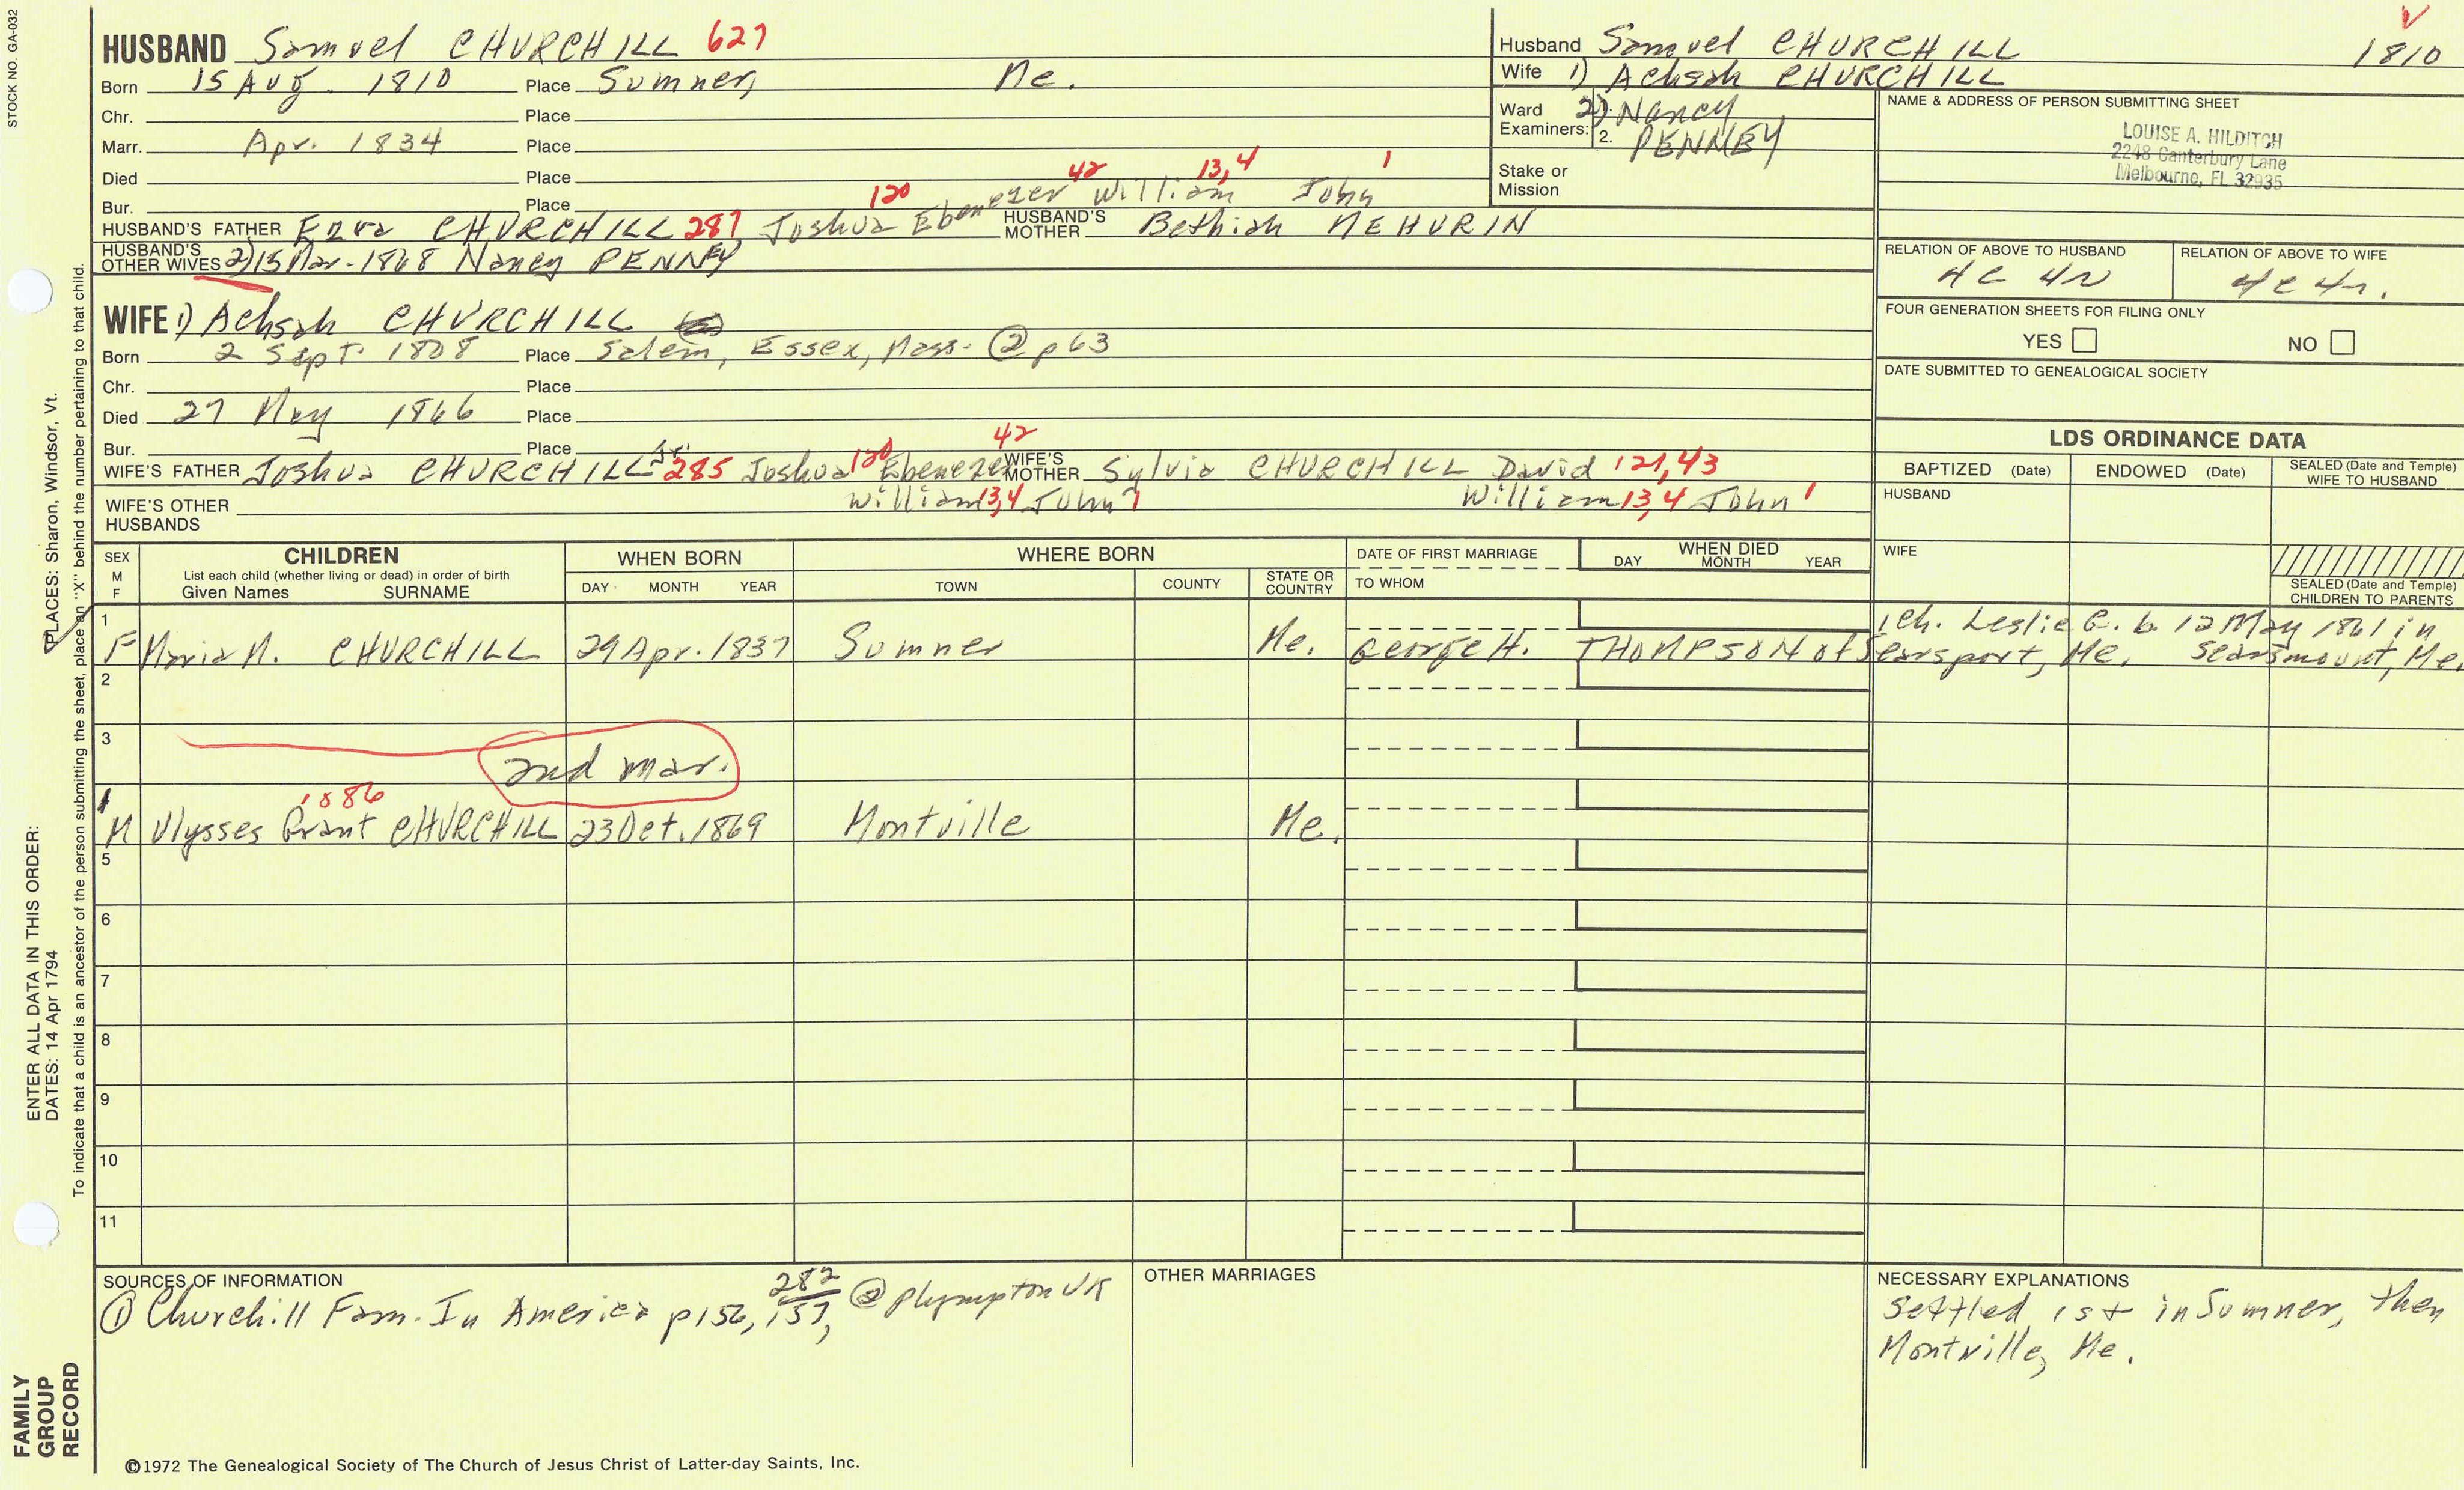 STOCK NO. GA-032
HUSBAND Samuel CHURCHILL 627
Born 15 Aug. 1810 Place Sumner, Me.
Chr. Place
Marr. Apr. 1834 Place
Died Place
Bur. Place
120 42 13,4 1
HUSBAND'S FATHER Ezra CHURCHILL 287 Joshua Ebenezer William John HUSBAND'S MOTHER Bethiah MEHURIN
HUSBAND'S OTHER WIVES 2) 15 Mar. 1868 Nancy PENNEY
WIFE 1) Achsah CHURCHILL
Born 2 Sept. 1808 Place Salem, Essex, Mass. ② p63
Chr. Place
Died 27 May 1866 Place
Bur. Place
WIFE'S FATHER Joshua CHURCHILL Jr. 285 Joshua 120 Ebenezer 42 WIFE'S MOTHER Sylvia CHURCHILL David 121,43
William 13,4 John 1 William 13,4 John 1
WIFE'S OTHER HUSBANDS
Husband Samuel CHURCHILL 1810
Wife 1) Achsah CHURCHILL
Ward Examiners: 2) Nancy
2. PENNEY
Stake or Mission
NAME & ADDRESS OF PERSON SUBMITTING SHEET
LOUISE A. HILDITCH
2248 Canterbury Lane
Melbourne, FL 32935
RELATION OF ABOVE TO HUSBAND RELATION OF ABOVE TO WIFE
4C 4r 4C 4r.
FOUR GENERATION SHEETS FOR FILING ONLY
YES NO
DATE SUBMITTED TO GENEALOGICAL SOCIETY
LDS ORDINANCE DATA
BAPTIZED (Date) ENDOWED (Date) SEALED (Date and Temple) WIFE TO HUSBAND
HUSBAND
WIFE
SEALED (Date and Temple) CHILDREN TO PARENTS
SEX M F CHILDREN WHEN BORN WHERE BORN DATE OF FIRST MARRIAGE WHEN DIED
List each child (whether living or dead) in order of birth
Given Names SURNAME DAY MONTH YEAR TOWN COUNTY STATE OR COUNTRY TO WHOM DAY MONTH YEAR
1 1 ch. Leslie C. b. 12 May 1861 in
F Maria M. CHURCHILL 29 Apr. 1837 Sumner Me. George H. THOMPSON of Searsport, Me. Searsmount, Me.
2
3
2nd mar.
1 1086
M Ulysses Grant CHURCHILL 23 Oct. 1869 Montville Me.
5
6
7
8
9
10
11
SOURCES OF INFORMATION
① Churchill Fam. In America p156, 157, 282 ② Plympton VR
OTHER MARRIAGES
NECESSARY EXPLANATIONS
Settled 1st in Sumner, then
Montville, Me.
©1972 The Genealogical Society of The Church of Jesus Christ of Latter-day Saints, Inc.
FAMILY
GROUP
RECORD
ENTER ALL DATA IN THIS ORDER:
DATES: 14 Apr 1794
PLACES: Sharon, Windsor, Vt.
To indicate that a child is an ancestor of the person submitting the sheet, place an "X" behind the number pertaining to that child.